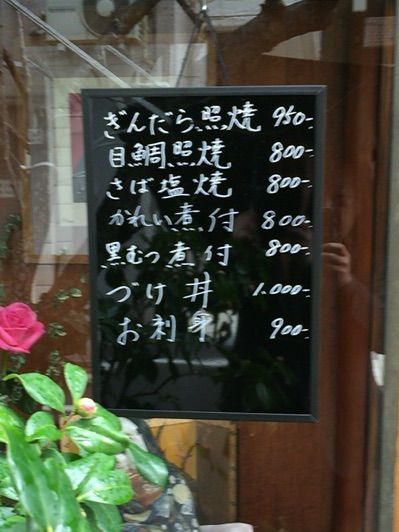 ぎんだら照焼 950-
目鯛照焼 800-
さば塩焼 800-
かれい煮付 800-
黒むつ煮付 800-
づけ丼 1.000-
お刺身 900-